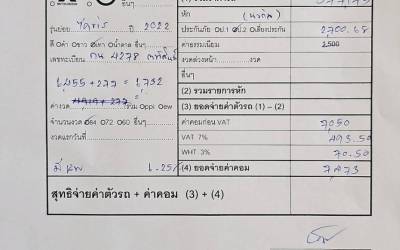 หัก
รุ่นย่อย Yaris ปี 2022
ประกันภัย ป.1 ป.2 เสียประกัน 2,700.68
สี ดำ ขาว เทา น้ำตาล อื่นๆ
ค่าธรรมเนียม 2,500
เลขทะเบียน กน 4278
งวดล่วงหน้า งวด
อื่นๆ
1,455 + 277 = 1,732
(2) รวมรายการหัก
ค่างวด รวม ppi ew
(3) ยอดจ่ายค่าตัวรถ (1) – (2)
จำนวนงวด 84 072 060 อื่นๆ
ค่าคอมก่อน VAT 7,050
งวดแรกวันที่
VAT 7% 493.50
WHT 3% 70.50
1.25/
(4) ยอดจ่ายค่าคอม 7,473
สุทธิจ่ายค่าตัวรถ + ค่าคอม (3) + (4)